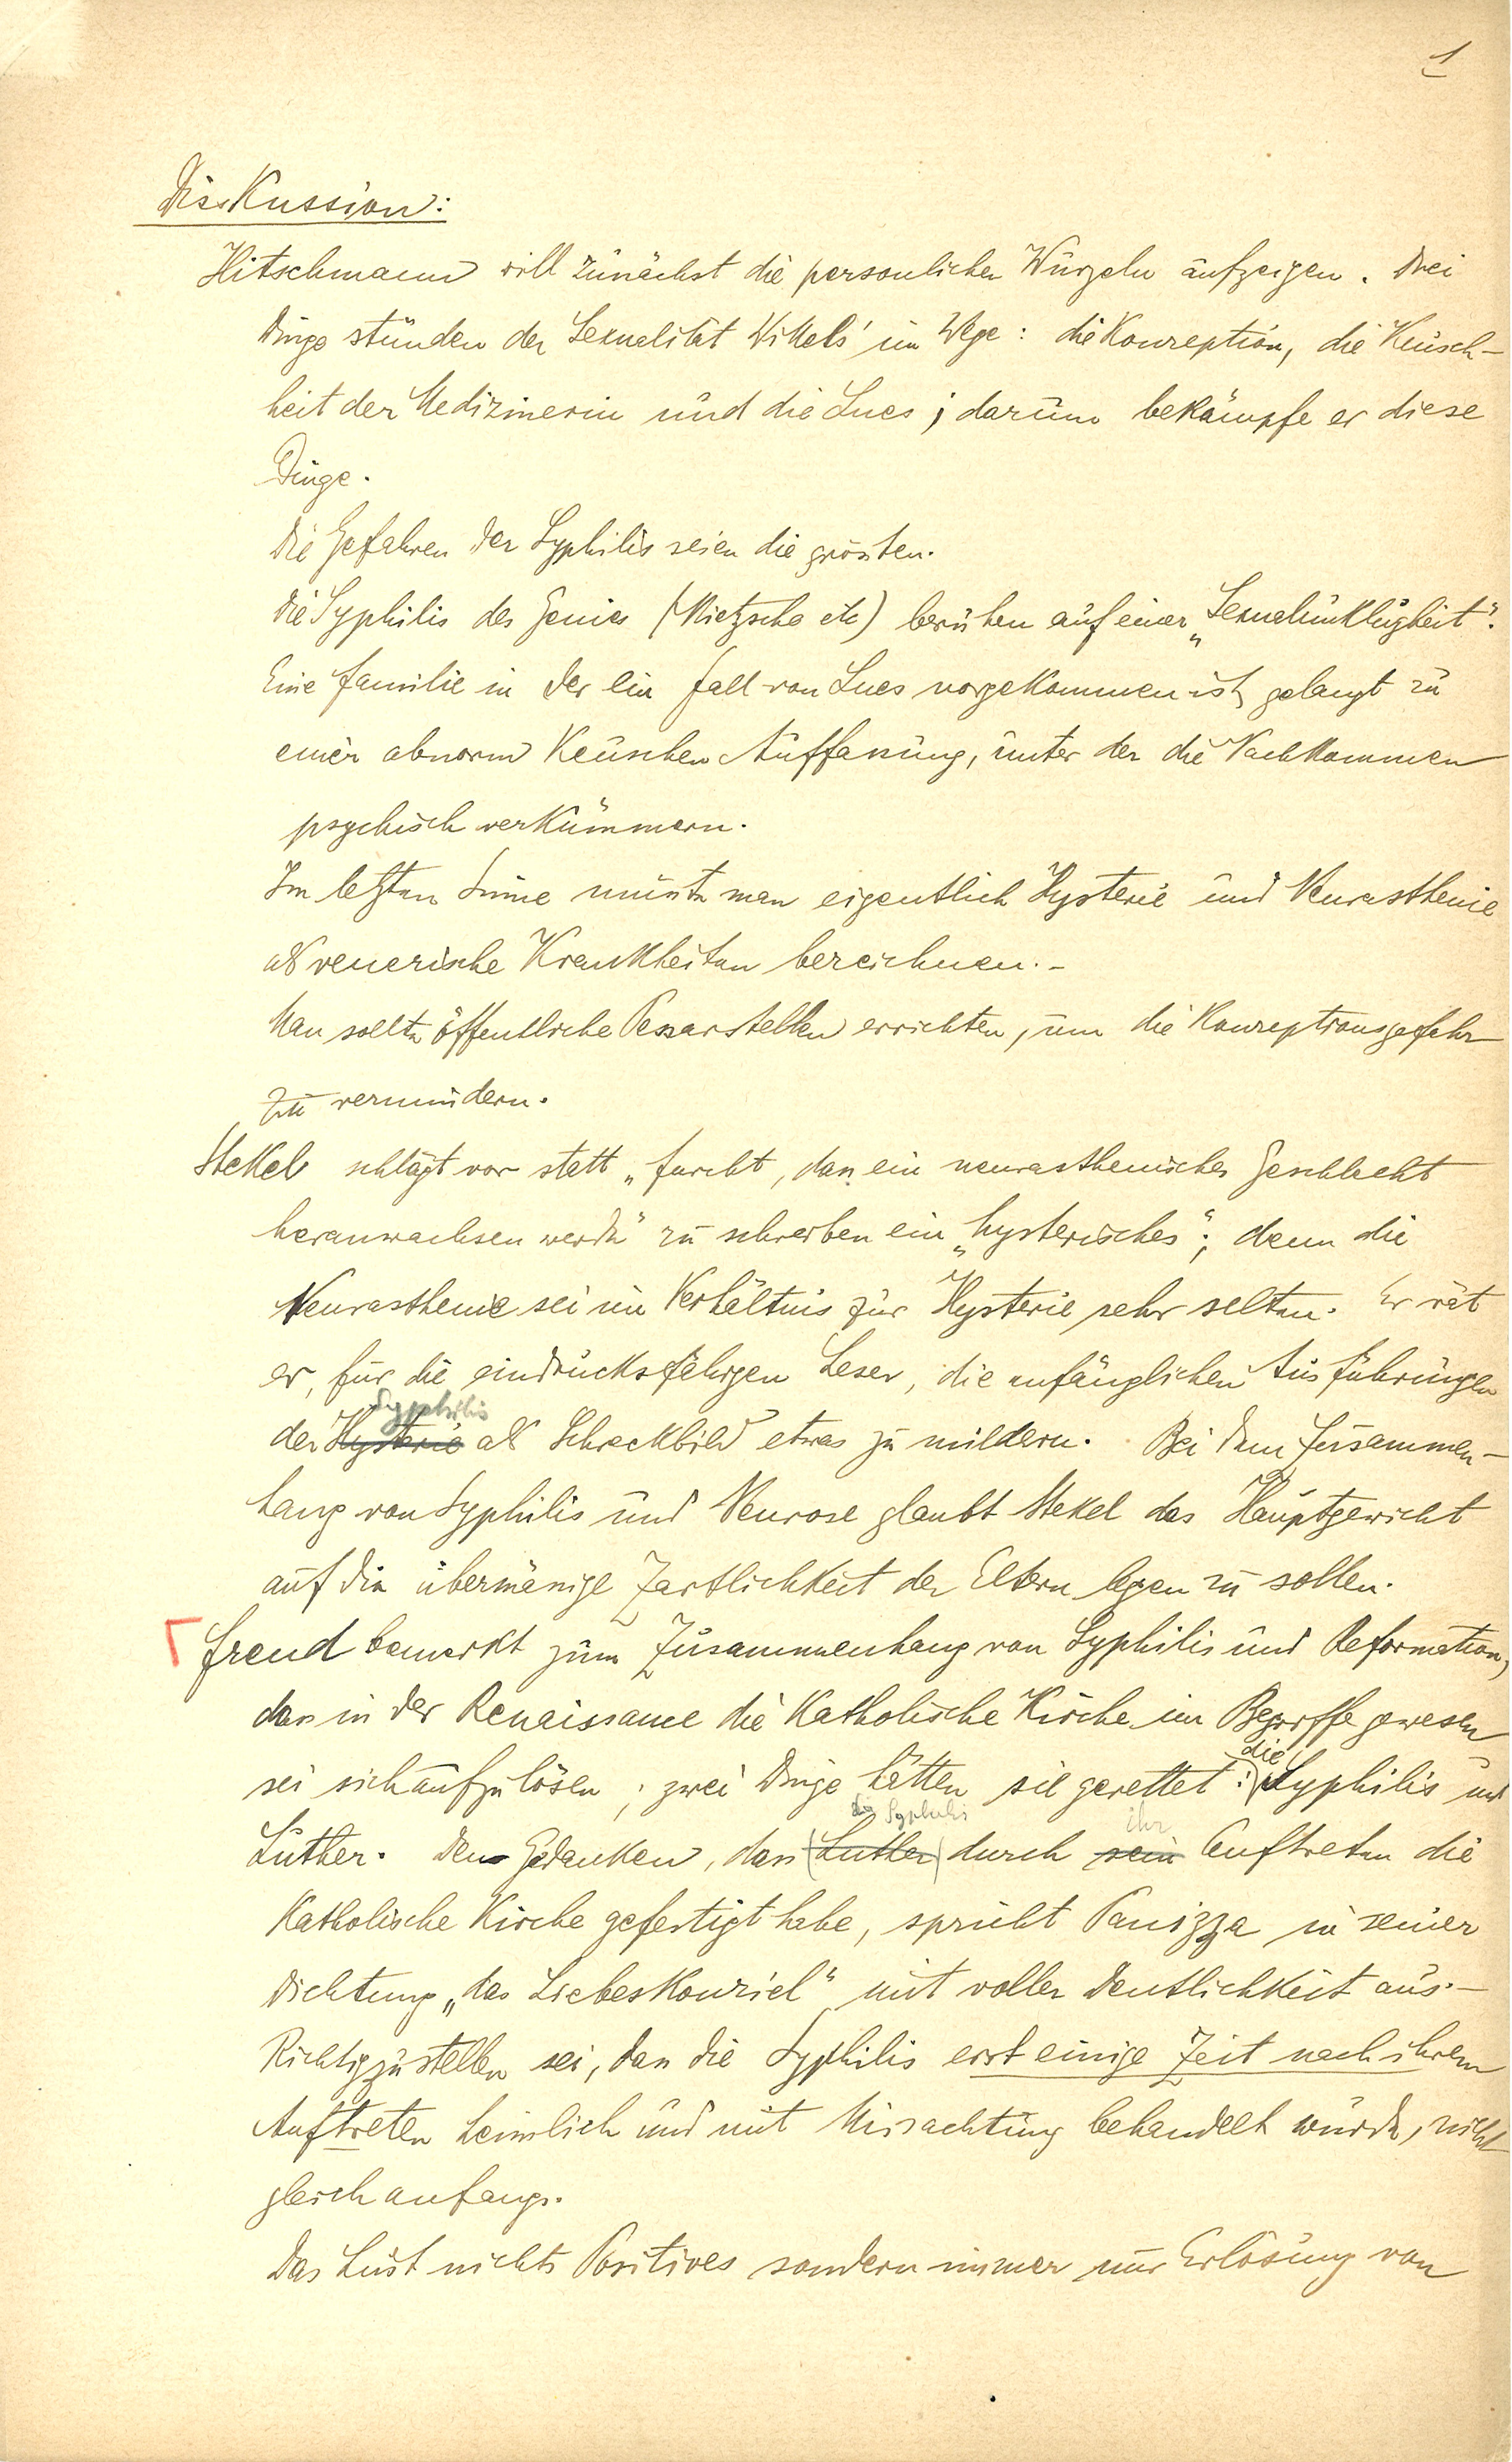 1
Diskussion:
Hitschmann will zunächst die persönlichen Wurzeln aufzeigen. Drei
Dinge stünden der Sexualität Wittels' im Wege: die Konzeption, die Keusch-
heit der Medizinerin und die Lues; darum bekämpfe er diese
Dinge.
Die Gefahren der Syphilis seien die grössten.
Die Syphilis der Genies (Nietzsche etc) beruhen auf einer „Sexualunklugheit".
Eine Familie in der ein Fall von Lues vorgekommen ist, gelangt zu
einer abnorm keuschen Auffassung, unter der die Nachkommen
psychisch verkümmern.
Im letzten Sinne müsste man eigentlich Hysterie und Neurasthenie
als venerische Krankheiten bezeichnen. –
Man sollte öffentliche Pessarstellen errichten, um die Konzeptionsgefahr
zu vermindern.
Stekel schlägt vor statt „Furcht, dass ein neurasthenisches Geschlecht
heranwachsen werde" zu schreiben ein „hysterisches"; denn die
Neurasthenie sei im Verhältnis zur Hysterie sehr selten. Er rät
er, für die eindrucksfähigen Leser, die anfänglichen Ausführungen
Syphilis
der Hysterie als Schreckbild etwas zu mildern. Bei dem Zusammen-
hang von Syphilis und Neurose glaubt Stekel das Hauptgewicht
auf die übermässige Zärtlichkeit der Eltern legen zu sollen.
Freud bemerkt zum Zusammenhang von Syphilis und Reformation,
dass in der Renaissance die Katholische Kirche im Begriffe gewesen
die
sei sich aufzulösen; zwei Dinge hätten sie gerettet: Syphilis und
die Syphilis ihr
Luther. Den Gedanken, dass (Luther) durch sein Auftreten die
Katholische Kirche gefestigt habe, spricht Panizza in seiner
Dichtung „das Liebeskonzil" mit voller Deutlichkeit aus. –
Richtigzustellen sei, dass die Syphilis erst einige Zeit nach ihrem
Auftreten heimlich und mit Missachtung behandelt wurde, nicht
gleich anfangs.
Das Lust nichts Positives sondern immer nur Erlösung von